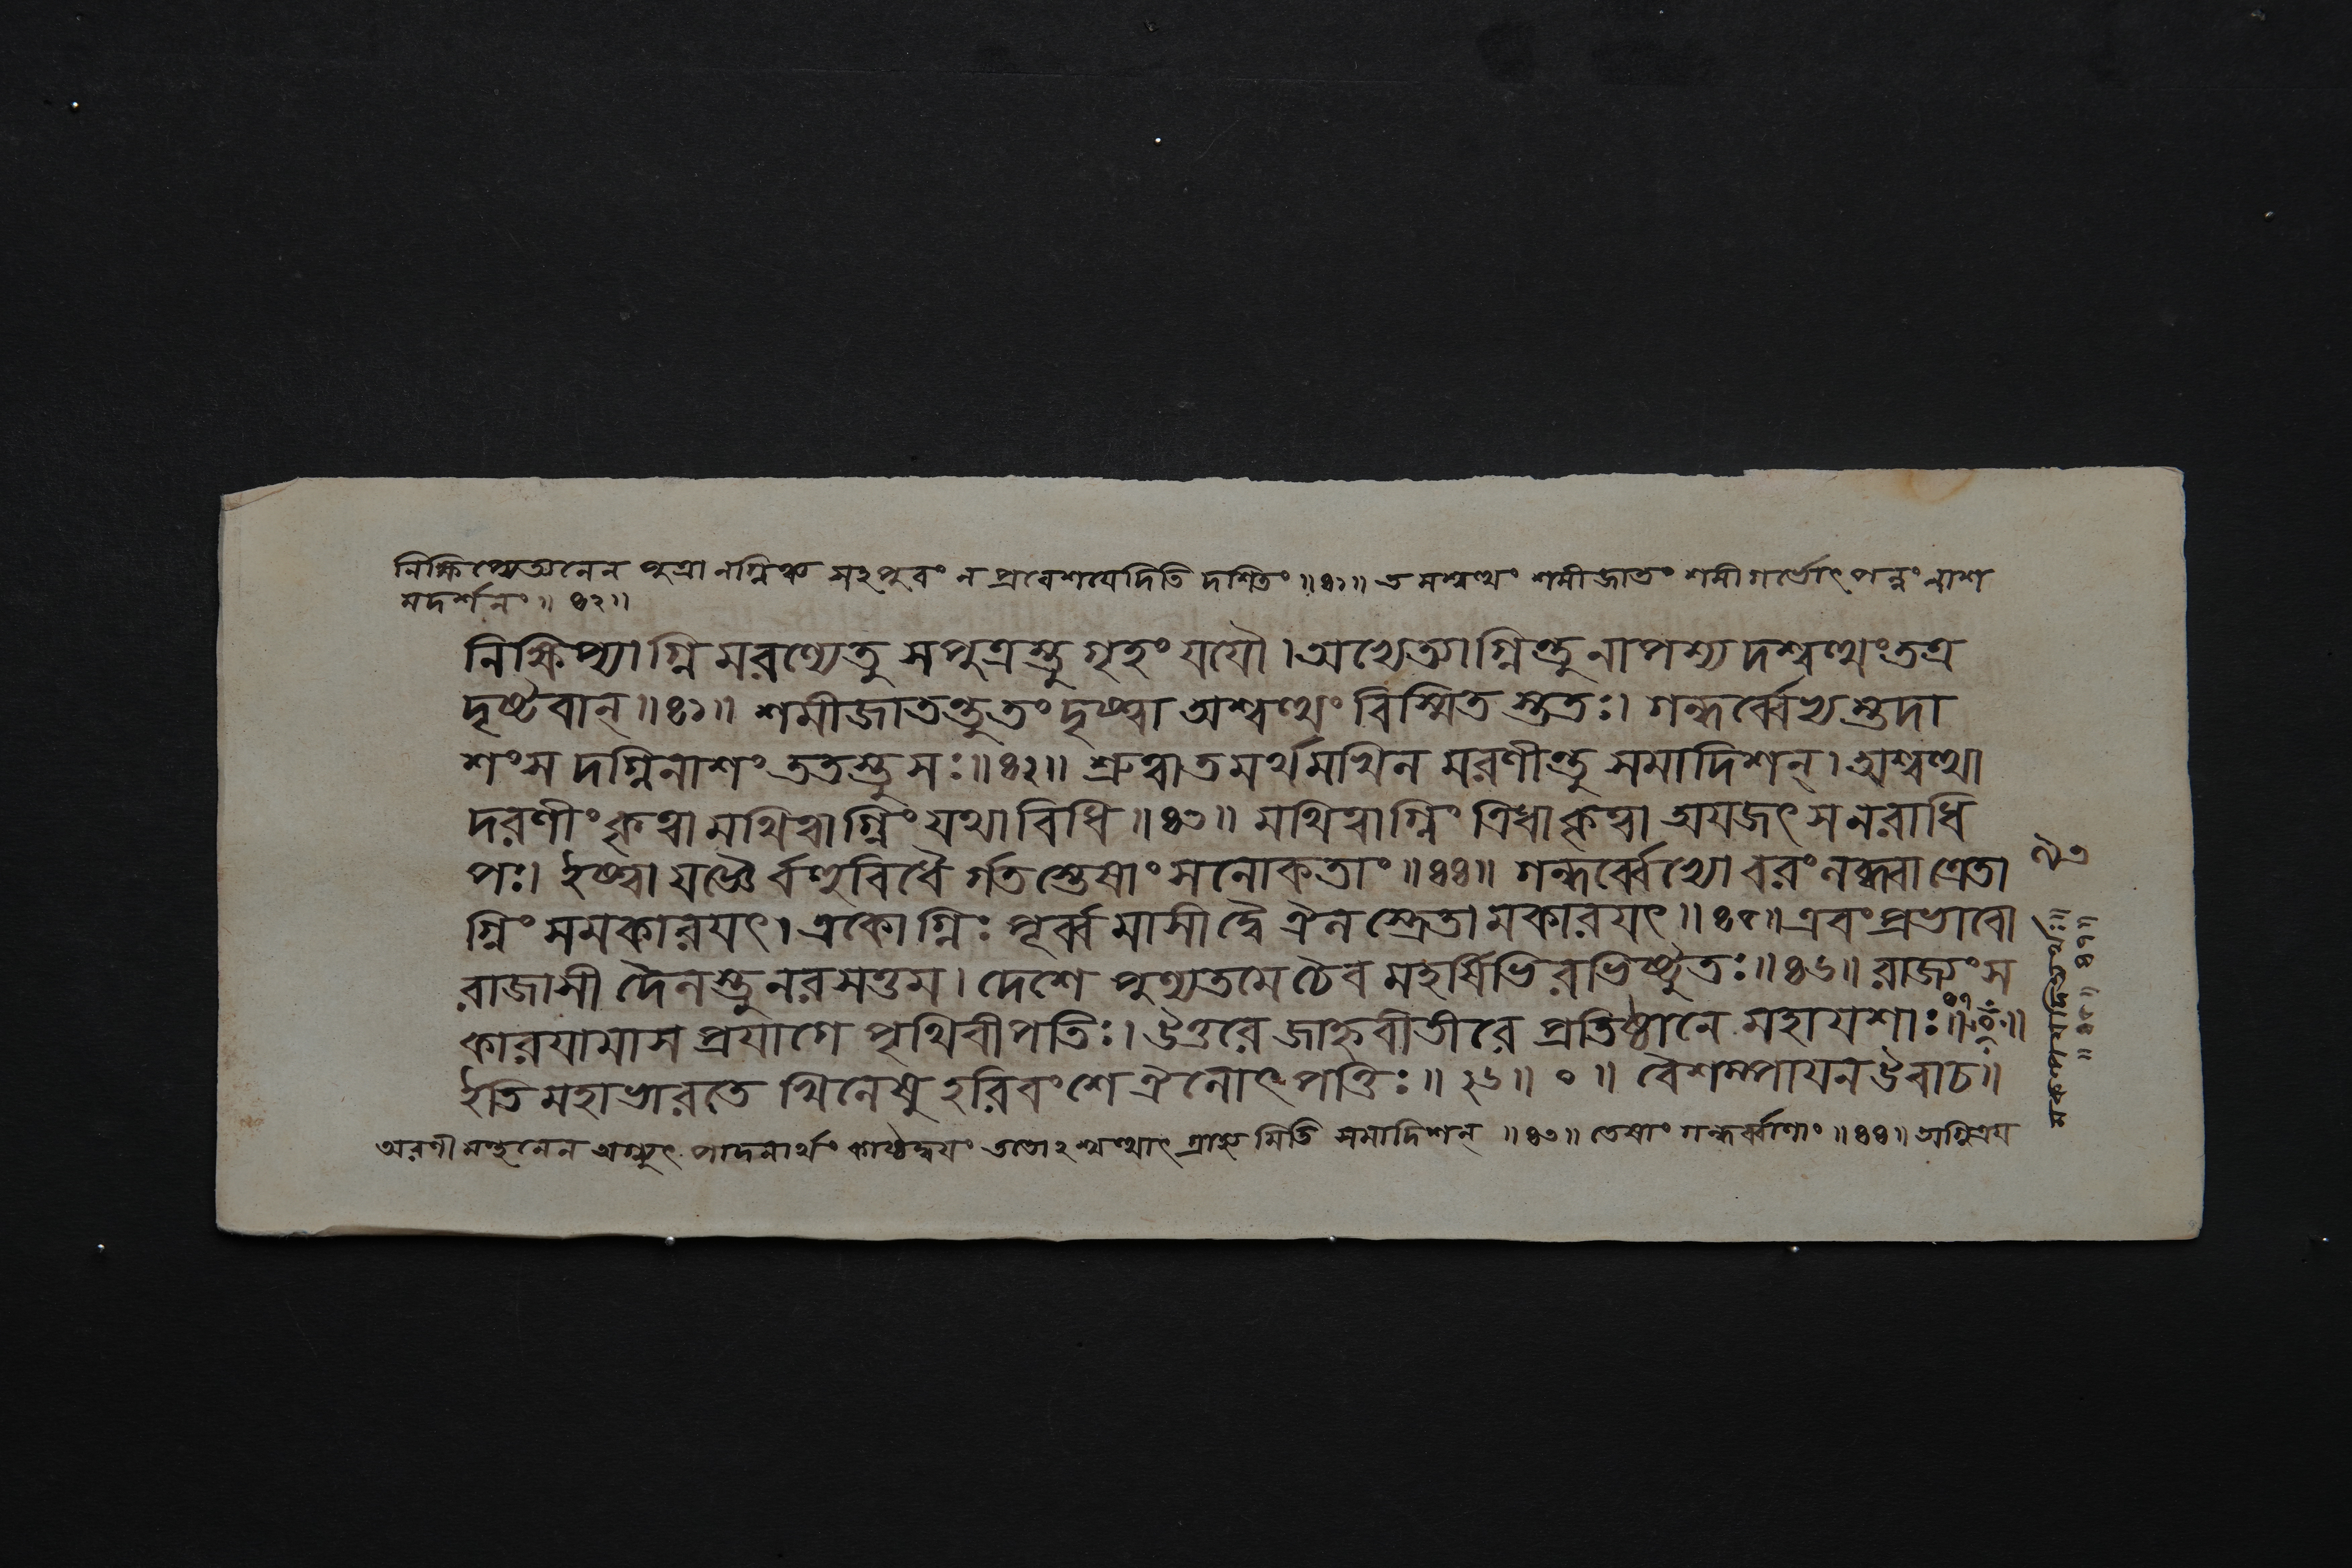 নিক্ষিপ্যেত্যনেন পুত্রানগ্নিঞ্চ সহপুরং ন প্রবেশয়েদিতি দর্শিতং ॥৪১॥ তমশ্বত্থং শমীজাতং শমীগর্ভোৎপন্নং নাশ
মদর্শনং ॥ ৪২ ॥
নিক্ষিপ্যাগ্নিমরণ্যেতু সপুত্রস্তু গৃহং যযৌ । ত্রেতাগ্নিন্তু নাপশ্যদশ্বত্থং তত্র
দৃষ্টবান্ ॥৪১॥ শমীজাতন্তু তং দৃষ্ট্বা অশ্বত্থং বিস্মিতস্ততঃ। গন্ধর্ব্বেভ্যস্তদা
শংসদগ্নিনাশং ততস্তু সঃ ॥৪২॥ শ্রুত্বা তমর্থমখিলমরণীন্তু সমাদিশন্ । অশ্বত্থা
দরণীং কৃত্বা মথিত্বাগ্নিং যথাবিধি ॥৪৩॥ মথিত্বাগ্নিং ত্রিধা কৃত্বা অযজৎ স নরাধি
পঃ। ইষ্ট্বা যজ্ঞৈর্ব্বহুবিধৈর্গতস্তেষাং সলোকতাং ॥৪৪॥ গন্ধর্ব্বেভ্যো বরং লব্ধ্বা ত্রেতা
গ্নিং সমকারয়ৎ । একোগ্নিঃ পূর্ব্বমাসীদ্বৈ ঐলস্ত্রেতামকারয়ৎ ॥৪৫॥ এবংপ্রভাবো
রাজাসীদৈলস্তু নরসত্তম । দেশে পুণ্যতমে চৈব মহর্ষিভিরভিষ্টুতঃ ॥৪৬॥ রাজ্যং স
কারয়ামাস প্রয়াগে পৃথিবীপতিঃ । উত্তরে জাহ্নবীতীরে প্রতিষ্ঠানে মহাযশাঃ ॥৪৭॥
ইতি মহাভারতে খিলেষু হরিবংশে ঐলোৎপত্তিঃ ॥ ২৬ ॥ ০ ॥ বৈশম্পায়ন উবাচ ॥
অরণী মন্থনেন অগ্ন্যুৎপাদনার্থং কাষ্ঠদ্বয়ং ততোঽশ্বত্থাৎ গ্রাহ্যমিতি সমাদিশন্ ॥৪৩॥ তেষাং গন্ধর্ব্বাণাং ॥৪৪॥ অগ্নিত্রয়
॥৪৫॥ ৪৬॥ ৪৭॥